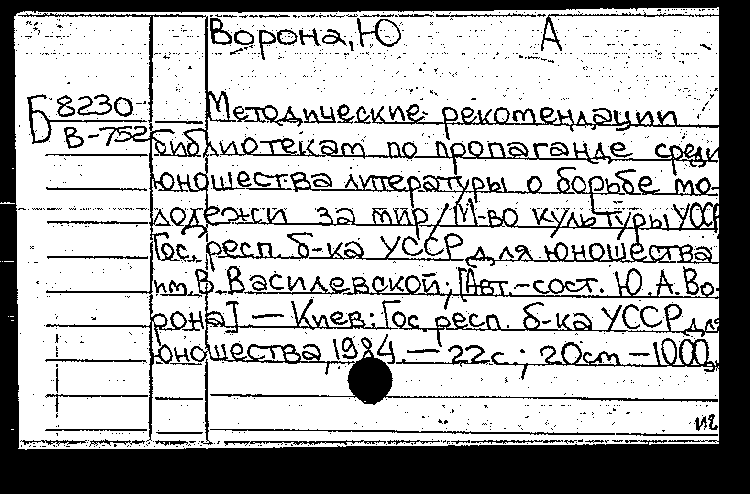 Ворона, Ю А
Б 8230
В-752
Методические рекомендации
библиотекам по пропаганде среди
юношества литературы о борьбе мо-
лодежи за мир/М-во культуры УССР
Гос. респ. б-ка УССР для юношества
им. В. Василевской; [Авт.-сост. Ю.А. Во-
рона]. — Киев: Гос. респ. б-ка УССР для
юношества, 1984. — 22 с.; 20 см — 1000 э